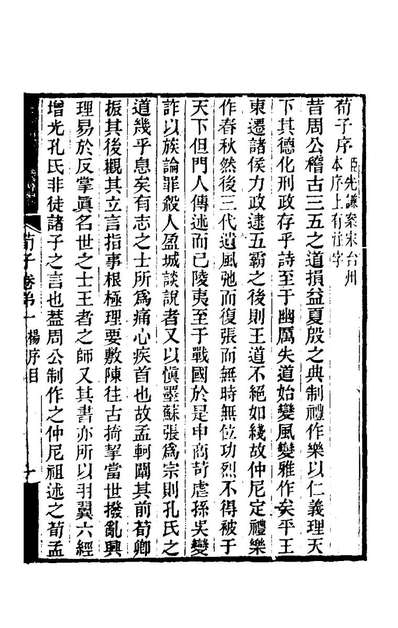 荀子序
臣先謙案宋台州
本序上有注字
昔周公稽古三五之道損益夏殷之典制禮作樂以仁義理天
下其德化刑政存乎詩至于幽厲失道始變風變雅作矣平王
東遷諸侯力政逮五霸之後則王道不絕如綫故仲尼定禮樂
作春秋然後三代遺風弛而復張而無時無位功烈不得被于
天下但門人傳述而已陵夷至于戰國於是申商苛虐孫吳變
詐以族論罪殺人盈城談說者又以愼墨蘇張爲宗則孔氏之
道幾乎息矣有志之士所爲痛心疾首也故孟軻闢其前荀卿
振其後觀其立言指事根極理要敷陳往古掎挈當世撥亂興
理易於反掌眞名世之士王者之師又其書亦所以羽翼六經
增光孔氏非徒諸子之言也葢周公制作之仲尼祖述之荀孟
荀子卷第一 楊序目